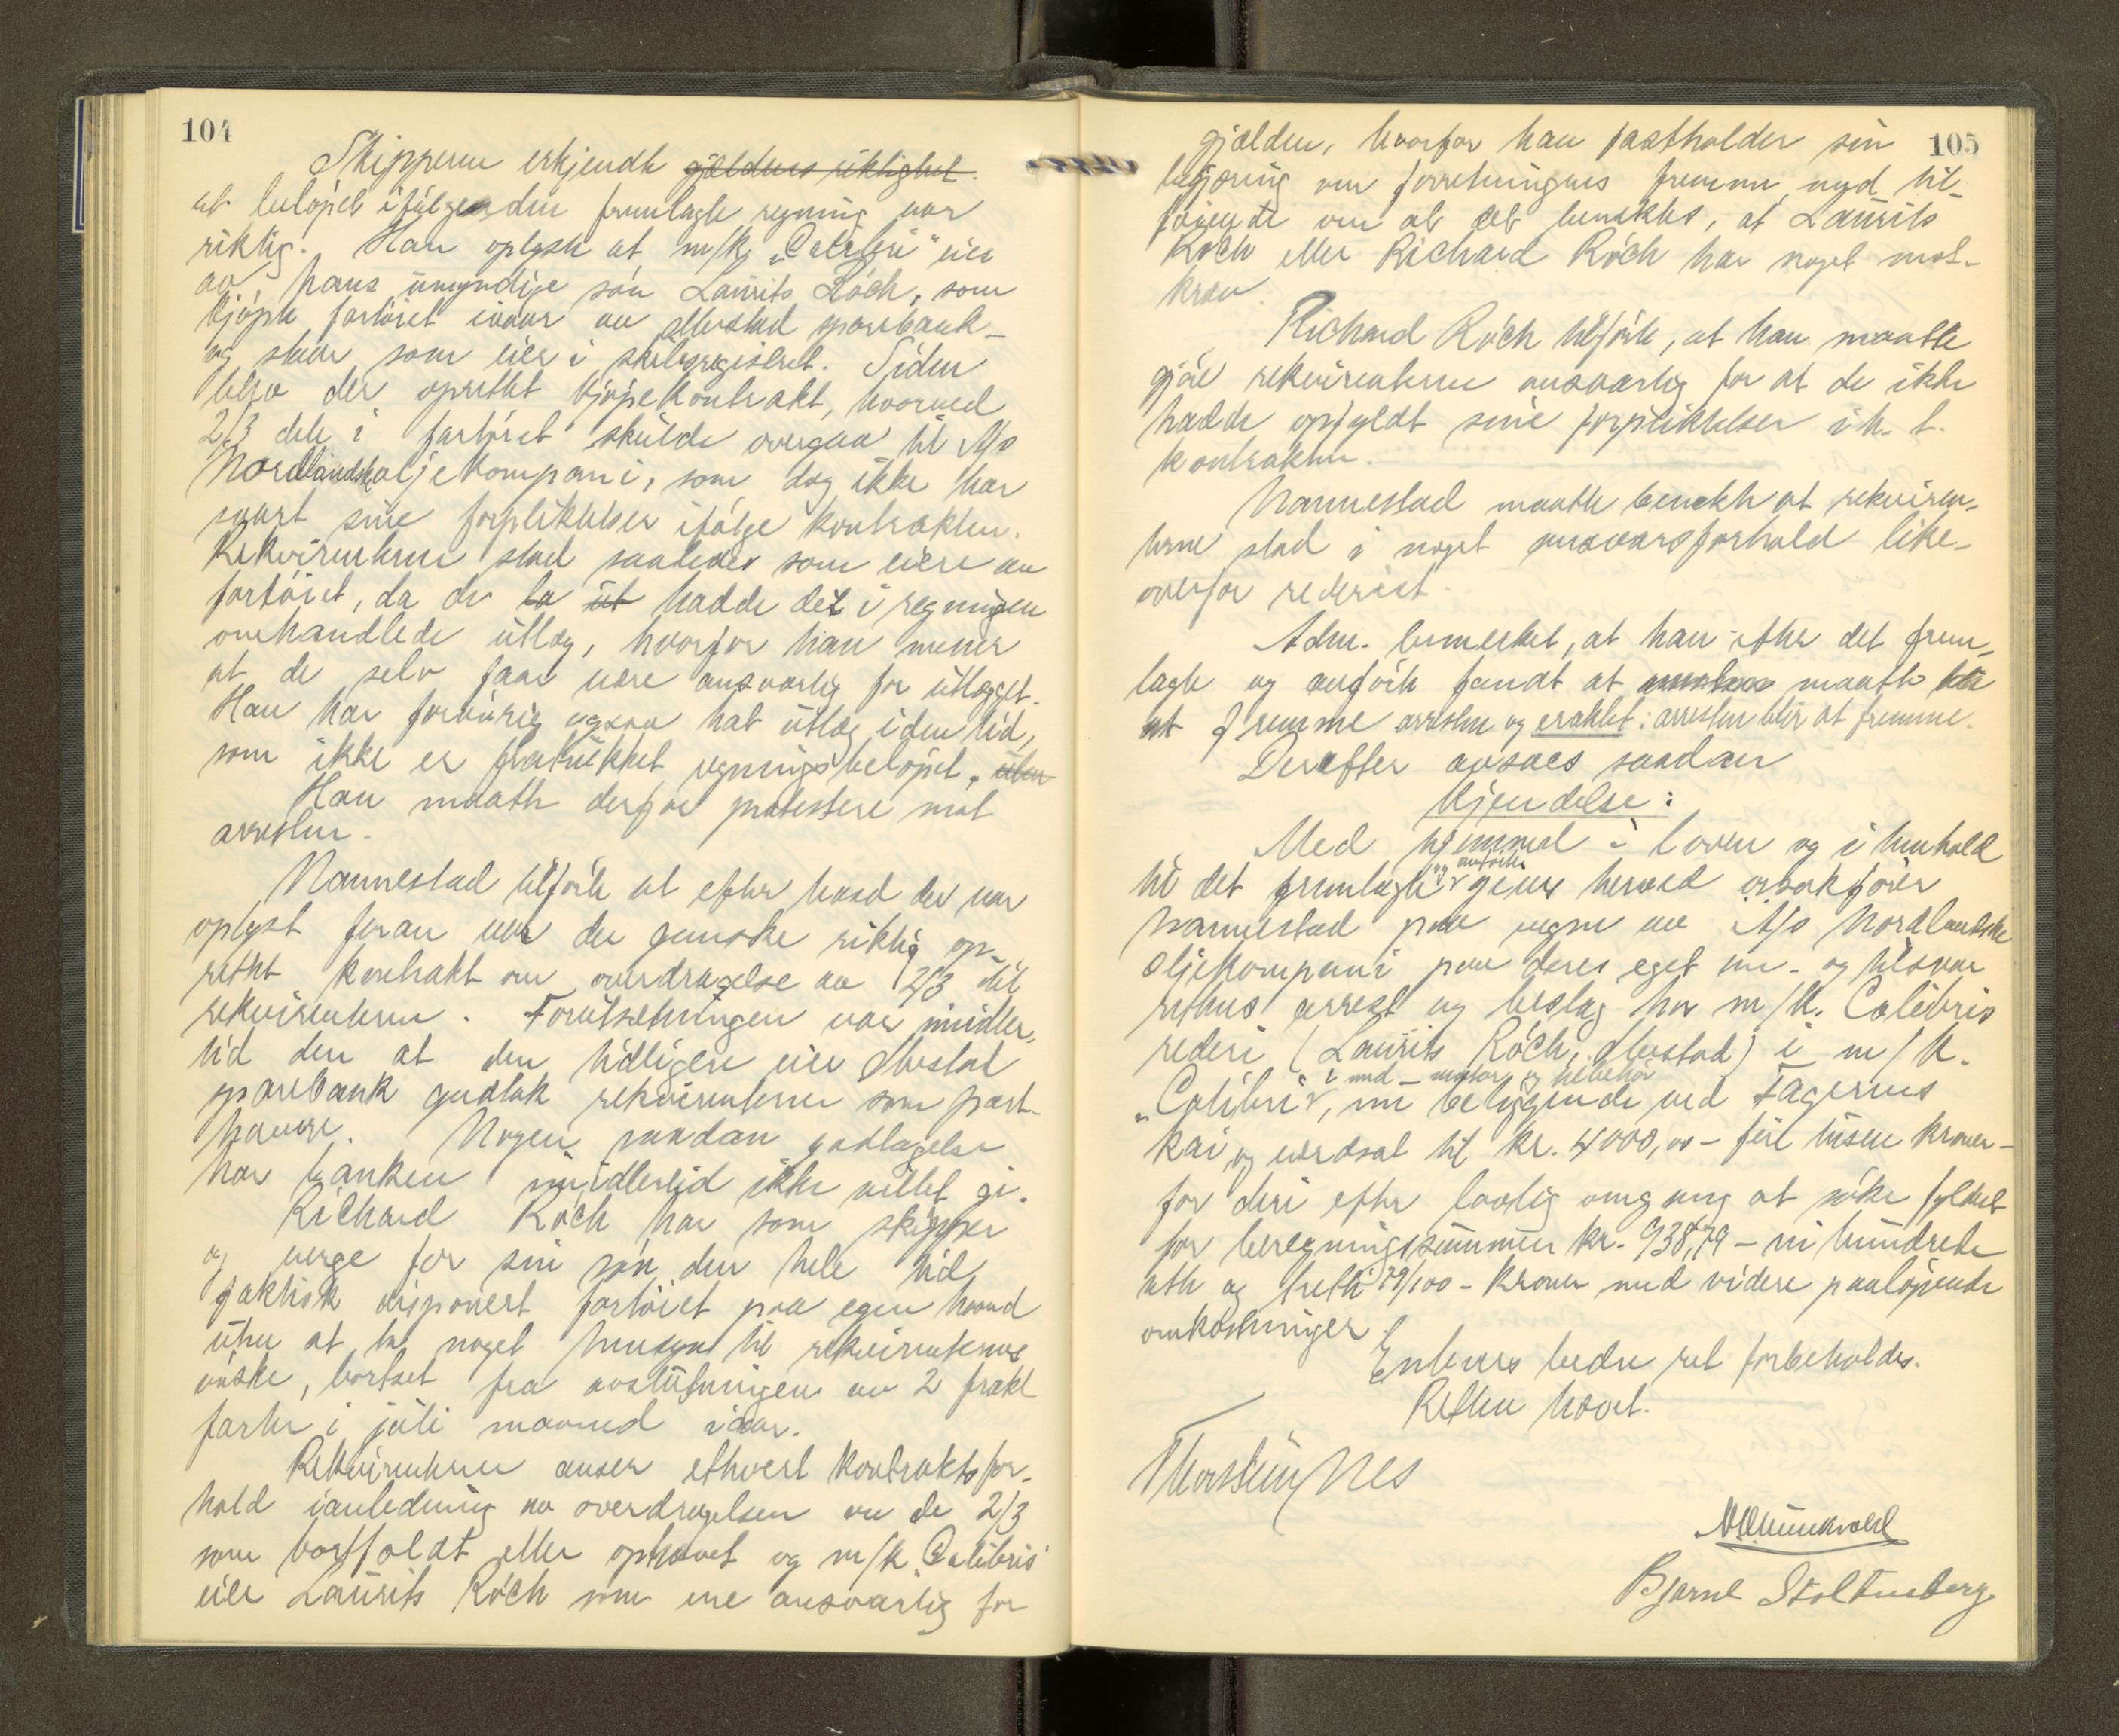 104
Skipperen erkjendte gjældens riktighet.
at beløpet ifølge den fremlagte regning var
riktig. Han oplyste at m/k „Colibri" eies
av hans umyndige søn Laurits Röch, som
kjøpte fartøiet ivaar av Mostad sparebank
og staar som eier i skibsregisteret. Siden
blev der oprettet kjøpekontrakt, hvorved
2/3 dele i fartøiet skulde overgaa til A/s
Nordlandske oljekompani, som dog ikke har
svart sine forpliktelser ifølge kontrakten.
Rekvirenterne stod saaledes som eiere av
fartøiet, da de la ut hadde det i regningen
omhandlede utlæg, hvorfor han mener
at de selv faar være ansvarlig for utlægget.
Han har forøvrig ogsaa hat utlæg i den tid,
som ikke er fratrukket regningsbeløpet. uten
Han maatte derfor protestere mot
arresten.
Nannestad tilførte at efter hvad der var
oplyst foran var der ganske riktig op-
rettet kontrakt om overdragelse av 2/3 til
rekvirenterne. Forutsetningen var imidler-
tid den at den tidligere eier Mostad
sparebank godtok rekvirenterne som part-
havere. Nogen saadan godtagelse
har banken imidlertid ikke villet gi.
Richard Röch har som skipper
og verge for sin søn den hele tid
faktisk disponert fartøiet paa egen haand
uten at ta noget hensyn til rekvirenternes
ønske, bortset fra avslutningen av 2 frakt
farter i juli maaned iaar.
Rekvirenterne anser ethvert kontraktsfor-
hold ianledning av overdragelsen av de 2/3
som bortfaldt eller ophævet og m/k „Colibris"
eier Laurits Röch som ene ansvarlig for
105
gjælden, hvorfor han fastholder sin
begjæring om forretningens fremme, med til-
føiende om at det benektes, at Laurits
Röch eller Richard Röch har noget mot-
krav.
Richard Röch tilførte, at han maatte
gjøre rekvirenterne ansvarlig for at de ikke
hadde opfyldt sine forpliktelser i h. t.
kontrakten.
Nannestad maatte benekte at rekviren-
terne stod i noget ansvarsforhold like-
overfor rederiet.
Adm. bemerket, at han efter det frem-
lagte og anførte fandt at maatte
at fremme arresten og eraktet: arresten blir at fremme.
Derefter avsaes saadan
Kjendelse:
Med hjemmel i loven og i henhold
til det fremlagte og anførte gives herved orsakfører
Nannestad paa vegne av A/s Nordlandske
Oljekompani paa deres eget an- og tilsvar
rettens arrest og beslag hos m/k. Colibris
rederi (Laurits Röch, Mostad) i m/k.
„Colibri", med motor og tilbehør, nu beliggende ved Fagernes
kai og værdsat til kr. 4000,00 - fire tusen kroner -
for deri efter lovlig omgang at søke fyldest
for beregningssummen kr. 938,79 - ni hundrede
otte og tretti 79/100 - kroner med videre paaløpende
omkostninger.
Enhvers bedre ret forbeholdes.
Retten hævet.
Thorstein Nes
Bjarne Stoltenberg